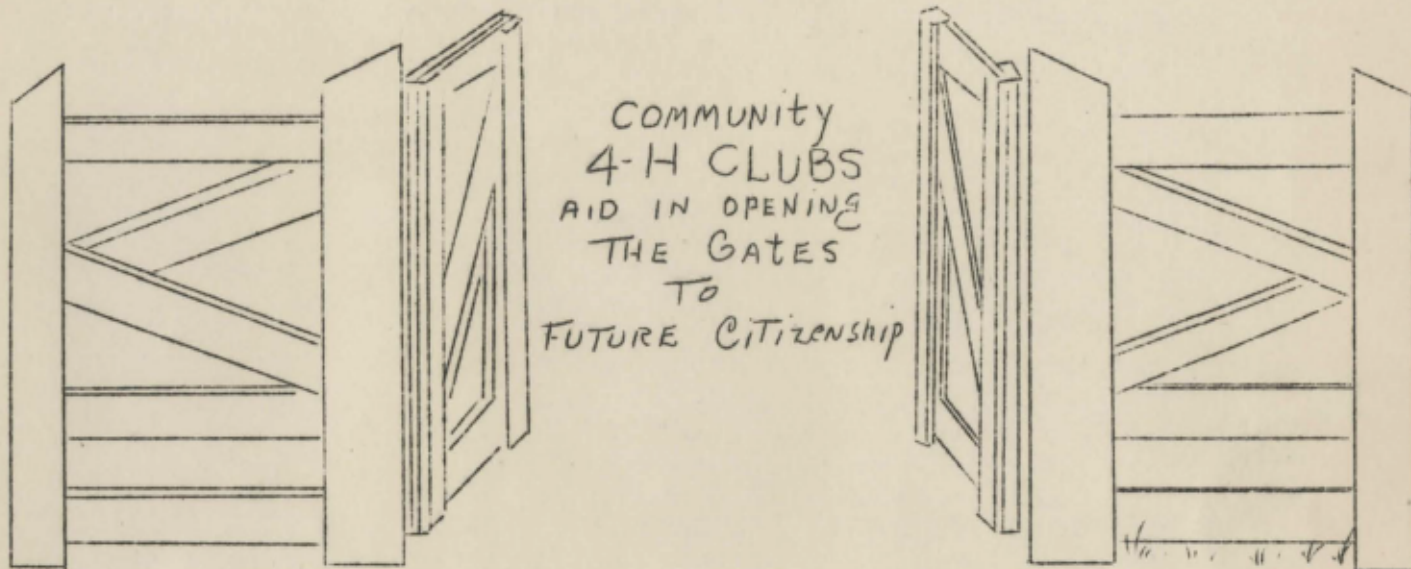 COMMUNITY
4-H CLUBS
AID IN OPENING
THE GATES
TO
FUTURE CITIZENSHIP